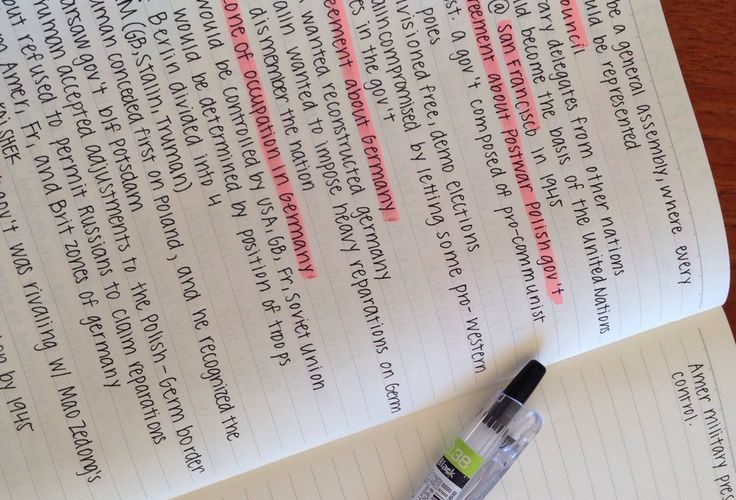 be a general assembly, where every
ould be represented
ouncil
rary delegates from other nations
ld become the basis of the United Nations
@ San Francisco in 1945
reement about Postwar Polish gov't
st: a gov't composed of pro-communist
poles
visioned free, demo elections
alin compromised by letting some pro-western
es in the gov't
eement about Germany
wanted reconstructed germany
alin wanted to impose heavy reparations on Germ
dismember the nation
zone of occupation in Germany
would be controlled by USA, GB, Fr, Soviet union
would be determined by position of troops
Berlin divided into 4
(GB, Stalin, Truman)
uman conceded first on Poland, and he recognized the
arsaw gov't b/f Potsdam
uman accepted adjustments to the Polish-Germ border
but refused to permit Russians to claim reparations
m Amer, Fr, and Brit zones of germany
SHEK
gov't was rivaling w/ Mao Zedong's
by 1945
Amer military pres
control.
0.38
black